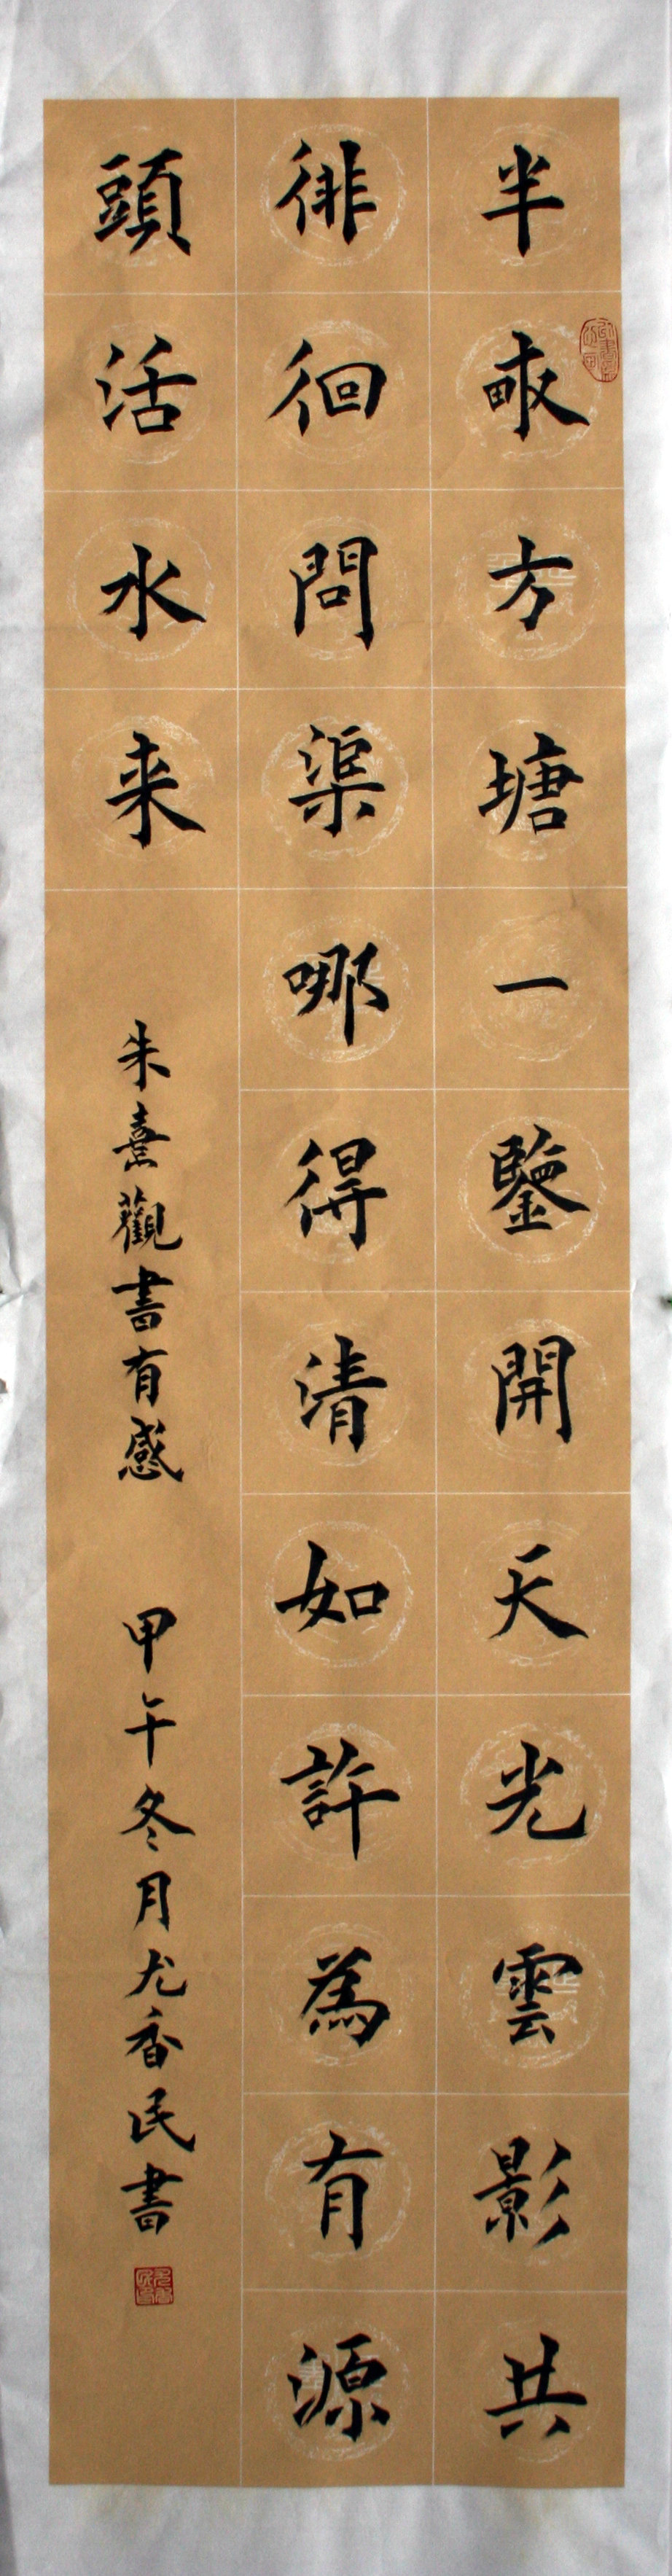 半畝方塘一鑒開天光雲影共
徘徊問渠哪得清如許為有源
頭活水来
朱熹觀書有感
甲午冬月尤香民書